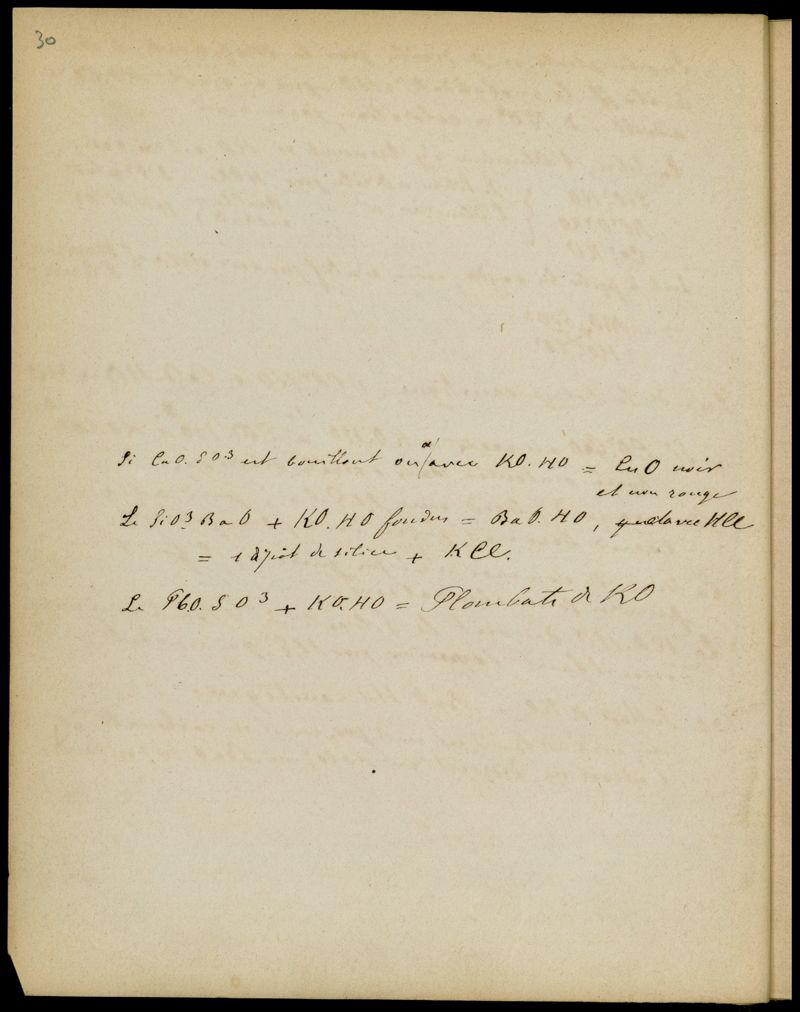 30
Si CuO. SO3 est bouillant ou avec KO. HO = CuO noir
et non rouge
Le SiO3 BaO + KO. HO fondus = BaO. HO, avec HCl
= 1 dépôt de silice + KCl.
Le PbO. SO3 + KO. HO = Plombate de KO